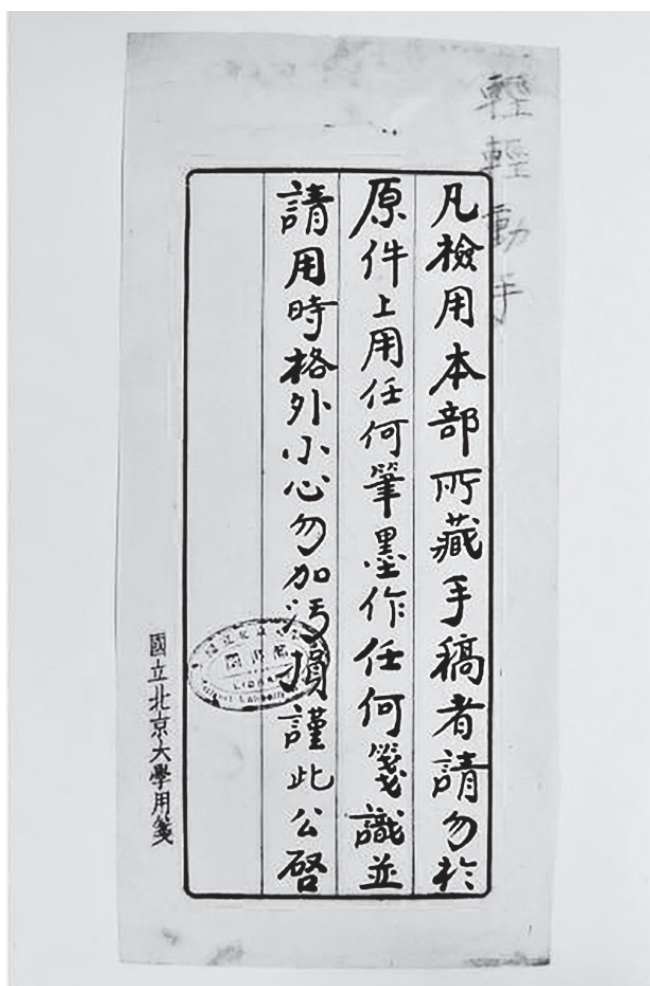 輕輕動手
凡檢用本部所藏手稿者請勿於
原件上用任何筆墨作任何箋識並
請用時格外小心勿加污損謹此公啓
國立北京大學用箋
圖書館
LIBRARY